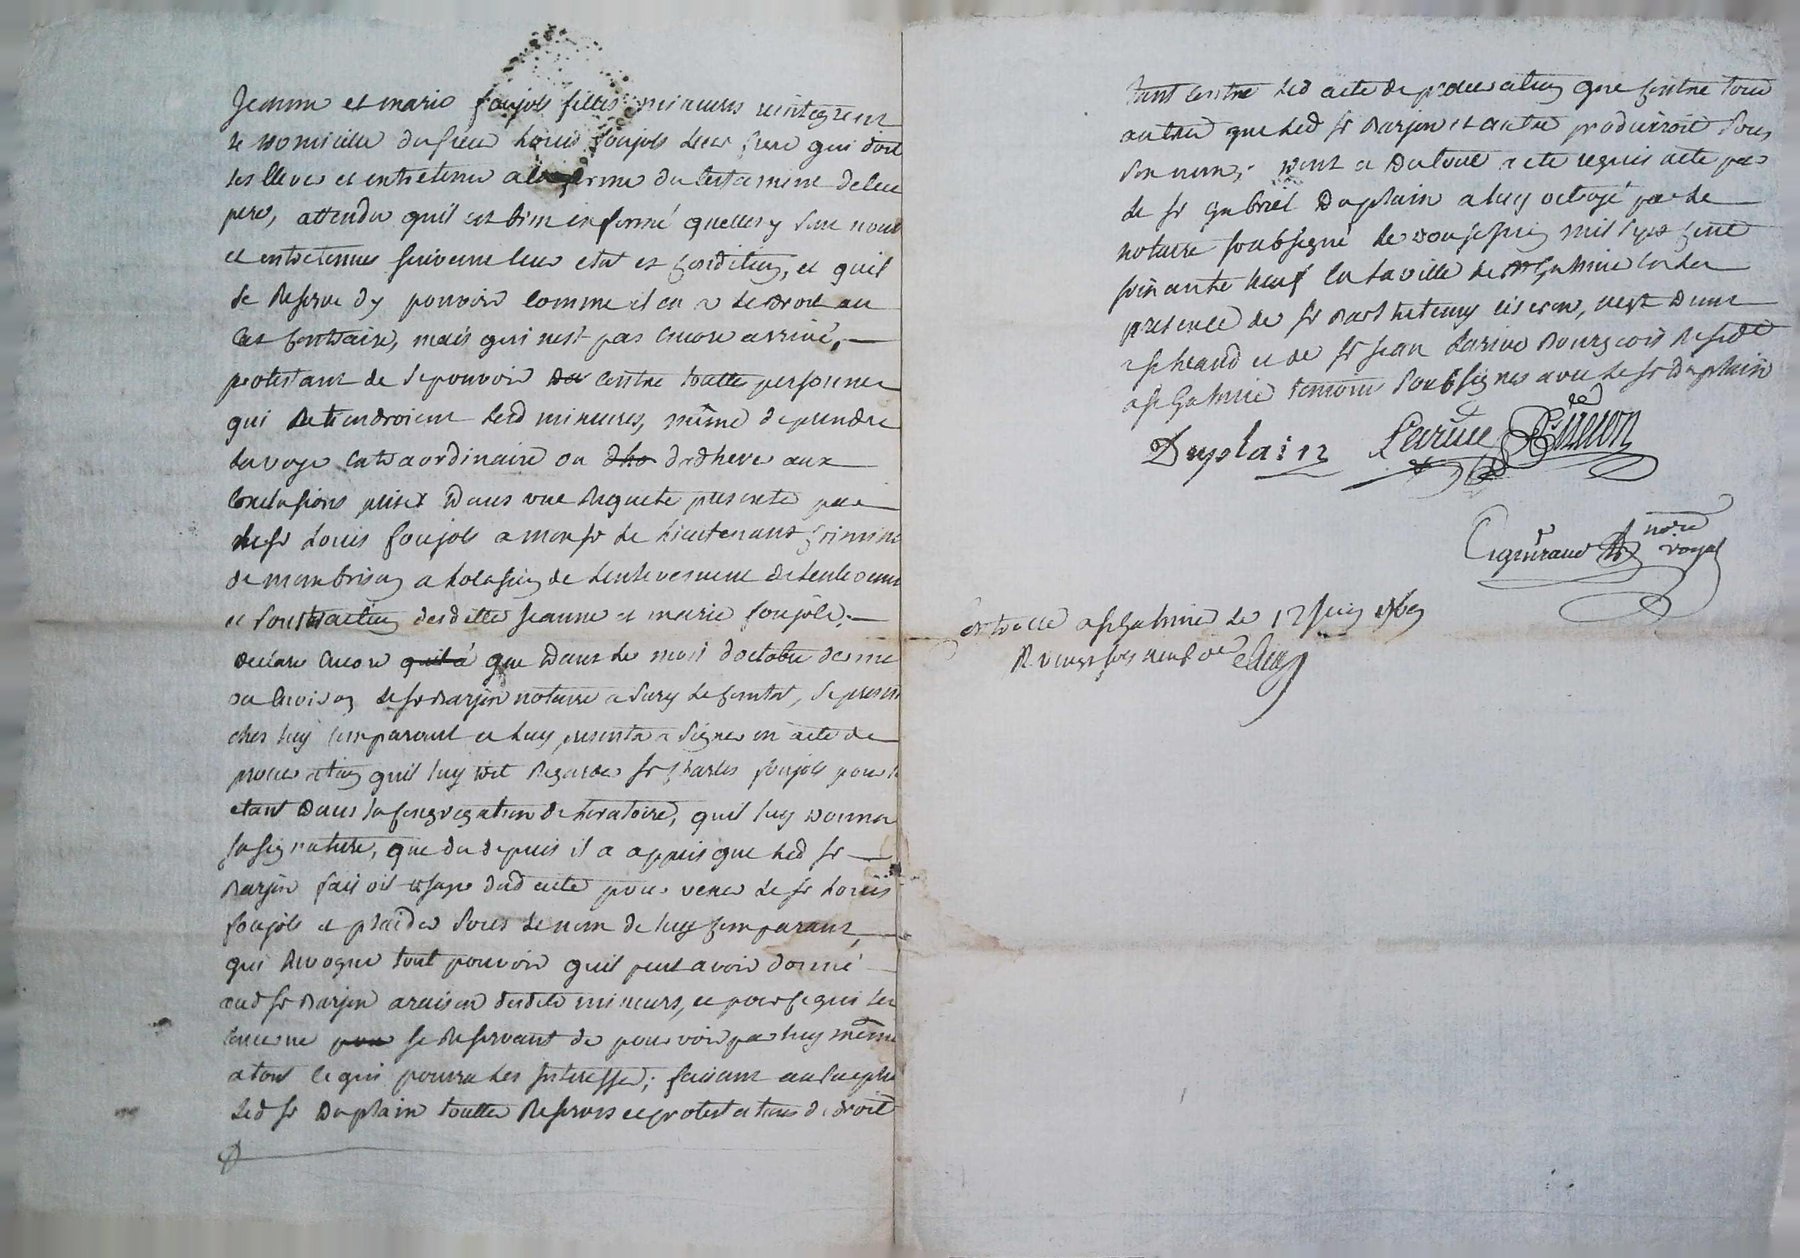 Jeanne et marie foujols filles mineures reintegrent
le domicille du sieur Louis foujols leur frere qui doit
les Elever et entretenir a la forme du testament de leur
pere, attendu quil est bien informé quelles y sont nourries
et entretenues suivant leur etat et condition, et quil
se Reserve dy pouvoir comme il en a le droit au
cas contraire, mais qui nest pas encore arrivé,
protestant de se pouvoir contre touttes personnes
qui Retiendroient lesd mineures, même de prendre
la voye Extraordinaire ou dadherer aux
conclusions prises Dans une Requete presentée par
led sr Louis foujols a monsr le Lieutenant criminel
de montbrison a loccasion de lenlevement
et soustraction desdittes Jeanne et marie foujols.
Declare encore que Dans le mois doctobre dernier
ou Environ le sr Barjon notaire a Sury le comtal, se presenta
chez luy comparant et luy presenta a signer un acte de
procuration quil luy dit Regarder sr Charles foujols pour lors
etant Dans la congregation de loratoire, quil luy donna
sa signature, que du depuis il a appris que led sr
Barjon faisoit usage dud acte pour vexer le sr Louis
foujols et plaider sous le nom de luy comparant,
qui Revoque tout pouvoir quil peut avoir donné
aud sr Barjon a raison desdits mineurs, et pour ce qui les
concerne se Reservant de pourvoir par luy même
a tout ce qui pourra les interesser; faisant au surplus
led sr Duplain touttes Reserves et protestations de droit
tant contre led acte de procuration que contre tous
autres que led sr Barjon et autre produiroit sous
son nom; dont et Du tout acte requis acte par
le sr Gabriel Duplain a luy octroyé par le
notaire soubsigné le douze juin mil sept cent
soixante neuf en la ville de st Galmier en la
presence de sr Barthelemy
et de sr jean Larive Bourgeois Reside
a st Galmier temoins soubsignés avec le sr Duplain
Duplain Larive
nore
royal
Controllé a st Galmier le 12 juin 1769